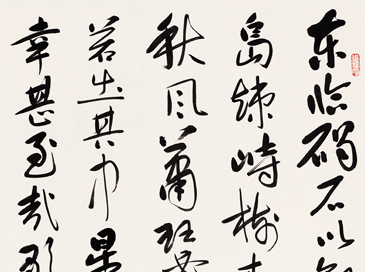 东临碣石以
岛竦峙树
秋风萧瑟
若出其中星
幸甚至哉歌